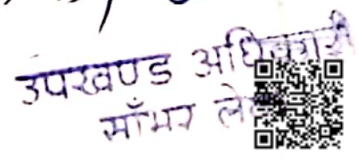 उपखण्ड अधिकारी
साँभर